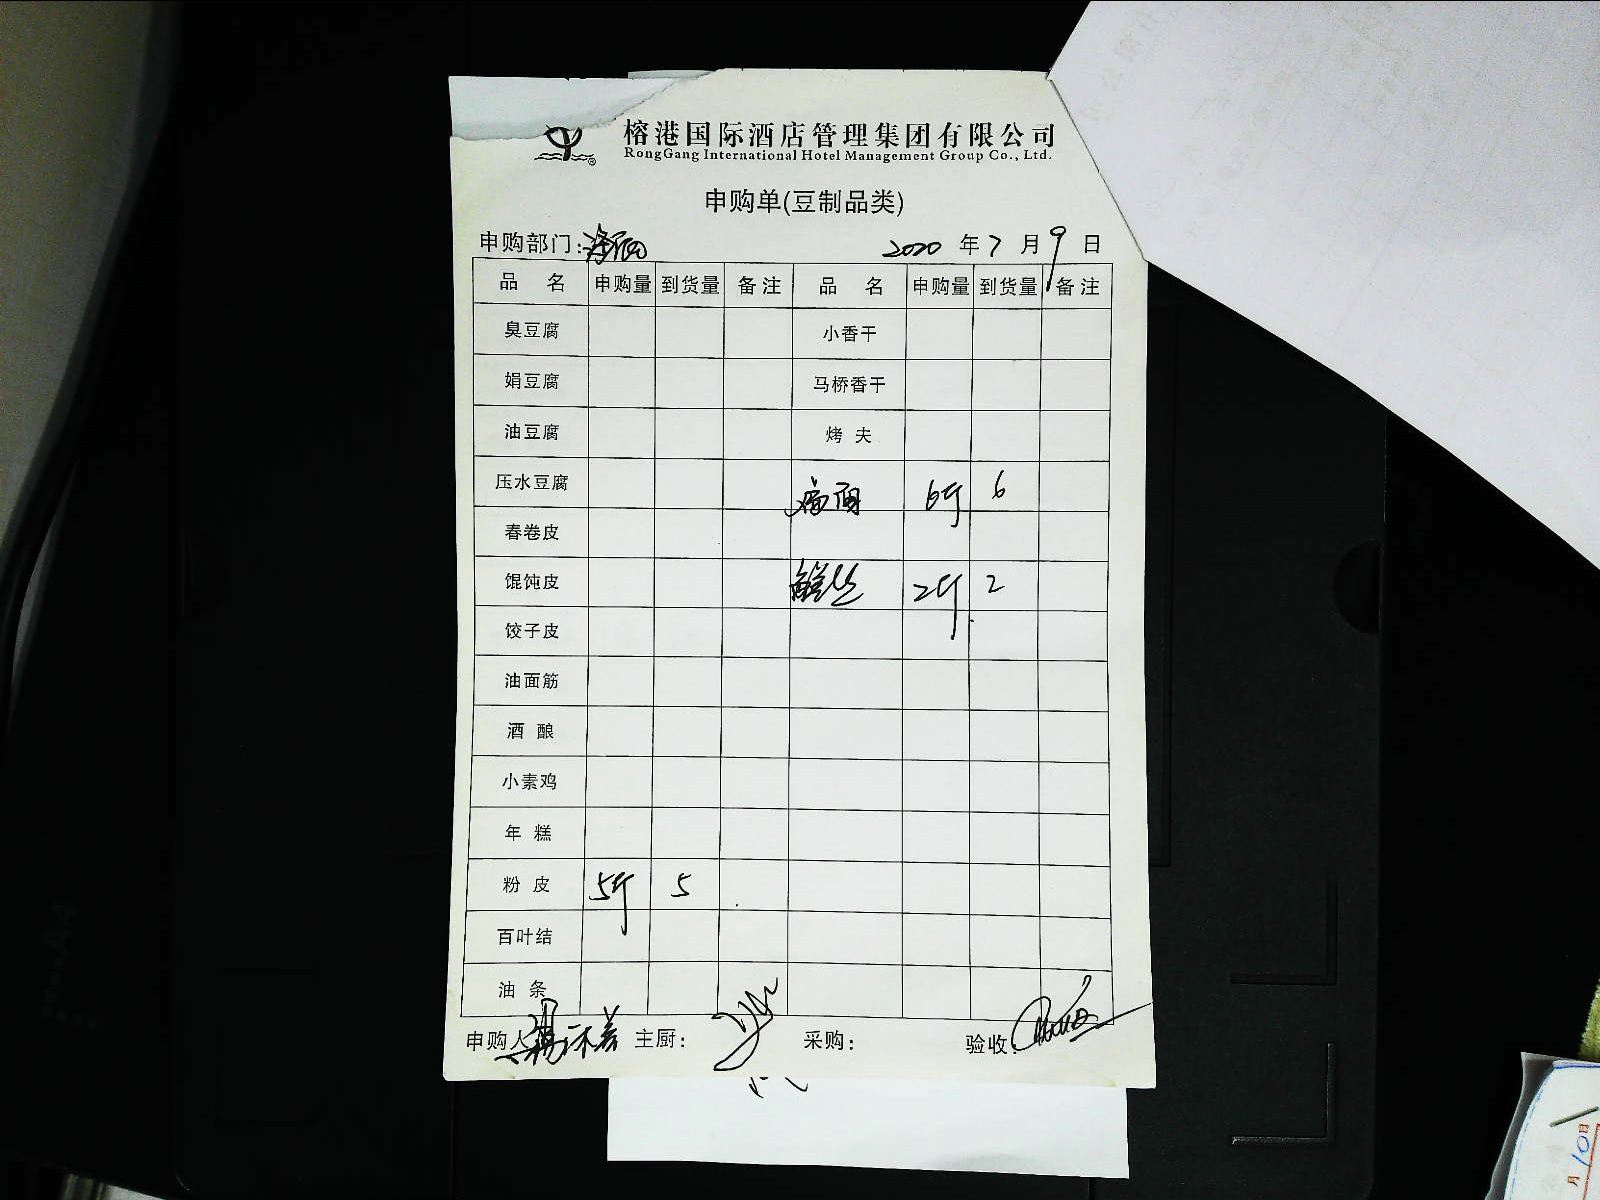 榕港国际酒店管理集团有限公司
RongGang International Hotel Management Group Co., Ltd.
申购单(豆制品类)
申购部门: 2020 年 7 月 9 日
品 名 申购量 到货量 备注 品 名 申购量 到货量 备注
臭豆腐 小香干
娟豆腐 马桥香干
油豆腐 烤夫
压水豆腐 6斤 6
春卷皮
馄饨皮 2斤 2
饺子皮
油面筋
酒酿
小素鸡
年糕
粉皮 5斤 5
百叶结
油条
申购人 主厨: 采购: 验收:
月10日